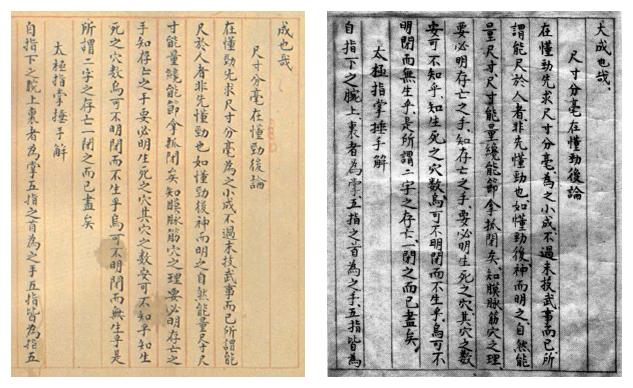 成也哉
尺寸分毫在懂勁後論
在懂勁先求尺寸分毫為之小成不過末技武事而已所謂能
尺於人者非先懂勁也如懂勁後神而明之自然能量尺寸尺
寸能量纔能節拿抓閉矣知膜脉筋穴之理要必明存亡之
手知存亡之手要必明生死之穴其穴之數安可不知乎知生
死之穴數烏可不明閉而不生乎烏可不明閉而無生乎是
所謂二字之存亡一閉之而已盡矣
太極指掌捶手解
自指下之腕上裏者為掌五指之首為之手五指皆為指五
大成也哉、
尺寸分毫在懂勁後論
在懂勁先求尺寸分毫、為之小成不過末技武事而已、所
謂能尺於人者非先懂勁也、如懂勁後神而明之、自然能
量尺寸尺寸能量纔能節拿抓閉矣、知膜脉筋穴之理
要必明存亡之手、知存亡之手、要必明生死之穴、其穴之數、
安可不知乎、知生死之穴數、烏可不明閉而不生乎、烏可不
明閉而無生乎、是所謂二字之存亡、一閉之而已盡矣、
太極指掌捶手解
自指下之腕上、裏者為掌、五指之首為之手、五指皆為